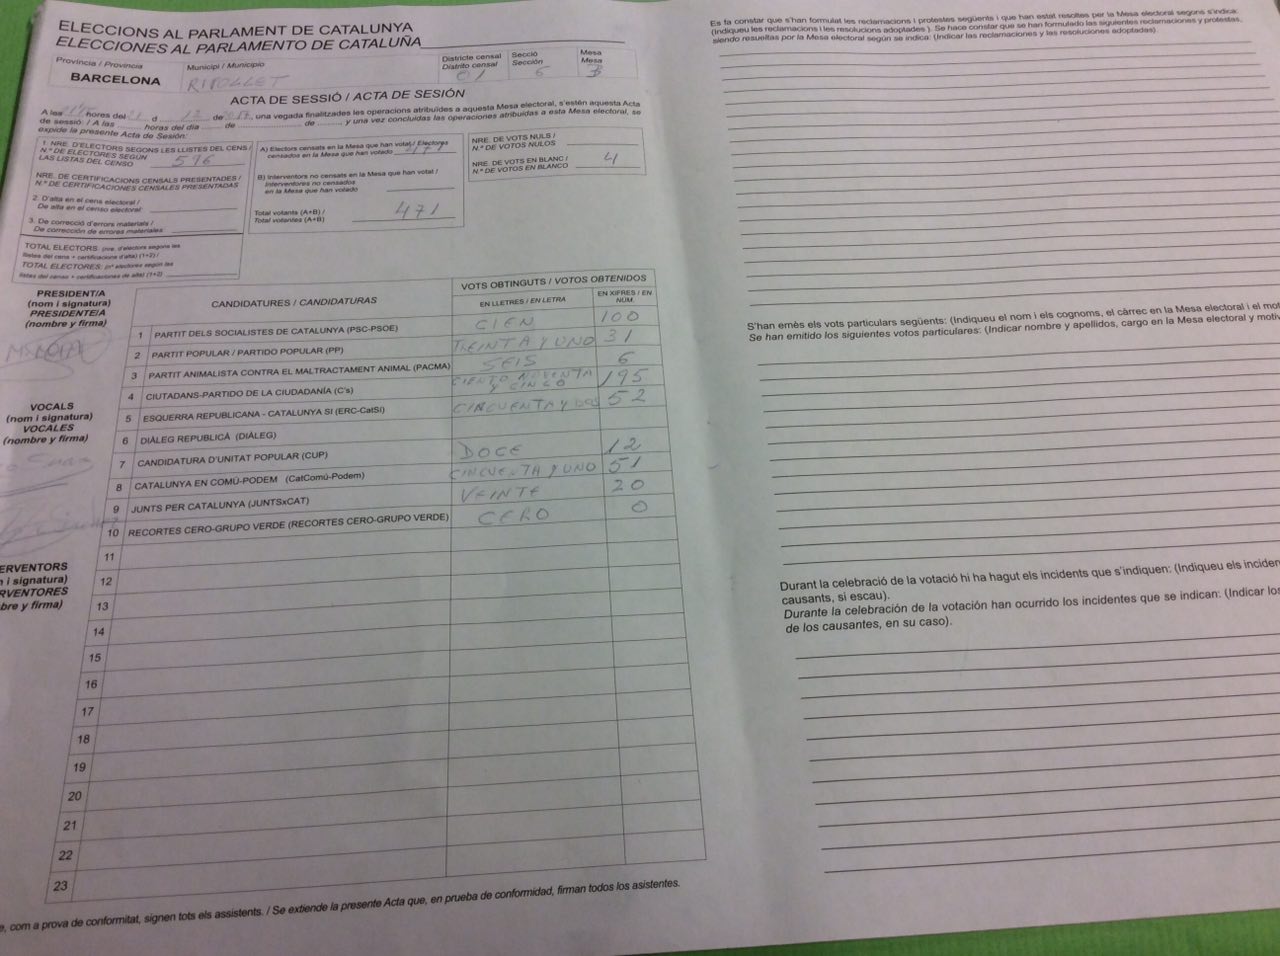 ELECCIONS AL PARLAMENT DE CATALUNYA
ELECCIONES AL PARLAMENTO DE CATALUÑA
Província / Provincia
BARCELONA
Municipi / Municipio
RIPOLLET
Districte censal
Distrito censal
01
Secció
Sección
6
Mesa
Mesa
B
ACTA DE SESSIÓ / ACTA DE SESIÓN
A les hores del 21 d 12 de 2017, una vegada finalitzades les operacions atribuïdes a aquesta Mesa electoral, s'estén aquesta Acta
de sessió: / A las horas del día de de y una vez concluidas las operaciones atribuidas a esta Mesa electoral, se
expide la presente Acta de Sesión:
1. NRE. D'ELECTORS SEGONS LES LLISTES DEL CENS /
N.º DE ELECTORES SEGÚN
LAS LISTAS DEL CENSO 596
NRE. DE CERTIFICACIONS CENSALS PRESENTADES /
N.º DE CERTIFICACIONES CENSALES PRESENTADAS
2. D'alta en el cens electoral /
De alta en el censo electoral:
3. De correcció d'errors materials /
De corrección de errores materiales
TOTAL ELECTORS: (nre. d'electors segons les
llistes del cens + certificacions d'alta) (1+2) /
TOTAL ELECTORES: (nº electores según las
listas del censo + certificaciones de alta) (1+2)
A) Electors censats en la Mesa que han votat / Electores
censados en la Mesa que han votado 471
B) Interventors no censats en la Mesa que han votat /
Interventores no censados
en la Mesa que han votado
Total votants (A+B) /
Total votantes (A+B) 471
NRE. DE VOTS NULS /
N.º DE VOTOS NULOS
NRE. DE VOTS EN BLANC /
N.º DE VOTOS EN BLANCO 4
PRESIDENT/A
(nom i signatura)
PRESIDENTE/A
(nombre y firma)
VOCALS
(nom i signatura)
VOCALES
(nombre y firma)
ERVENTORS
n i signatura)
RVENTORES
bre y firma)
CANDIDATURES / CANDIDATURAS
VOTS OBTINGUTS / VOTOS OBTENIDOS
EN LLETRES / EN LETRA
EN XIFRES / EN NÚM.
1 PARTIT DELS SOCIALISTES DE CATALUNYA (PSC-PSOE) CIEN 100
2 PARTIT POPULAR / PARTIDO POPULAR (PP) TREINTA Y UNO 31
3 PARTIT ANIMALISTA CONTRA EL MALTRACTAMENT ANIMAL (PACMA) SEIS 6
4 CIUTADANS-PARTIDO DE LA CIUDADANÍA (C's) CIENTO NOVENTA Y CINCO 195
5 ESQUERRA REPUBLICANA - CATALUNYA SI (ERC-CatSI) CINCUENTA Y DOS 52
6 DIÀLEG REPUBLICÀ (DIÀLEG)
7 CANDIDATURA D'UNITAT POPULAR (CUP) DOCE 12
8 CATALUNYA EN COMÚ-PODEM (CatComú-Podem) CINCUENTA Y UNO 51
9 JUNTS PER CATALUNYA (JUNTSxCAT) VEINTE 20
10 RECORTES CERO-GRUPO VERDE (RECORTES CERO-GRUPO VERDE) CERO 0
11
12
13
14
15
16
17
18
19
20
21
22
23
e, com a prova de conformitat, signen tots els assistents. / Se extiende la presente Acta que, en prueba de conformidad, firman todos los asistentes.
Es fa constar que s'han formulat les reclamacions i protestes següents i que han estat resoltes per la Mesa electoral segons s'indica:
(Indiqueu les reclamacions i les resolucions adoptades ). Se hace constar que se han formulado las siguientes reclamaciones y protestas,
siendo resueltas por la Mesa electoral según se indica: (Indicar las reclamaciones y las resoluciones adoptadas).
S'han emès els vots particulars següents: (Indiqueu el nom i els cognoms, el càrrec en la Mesa electoral i el mot
Se han emitido los siguientes votos particulares: (Indicar nombre y apellidos, cargo en la Mesa electoral y motiv
Durant la celebració de la votació hi ha hagut els incidents que s'indiquen: (Indiqueu els inciden
causants, si escau).
Durante la celebración de la votación han ocurrido los incidentes que se indican: (Indicar los
de los causantes, en su caso).